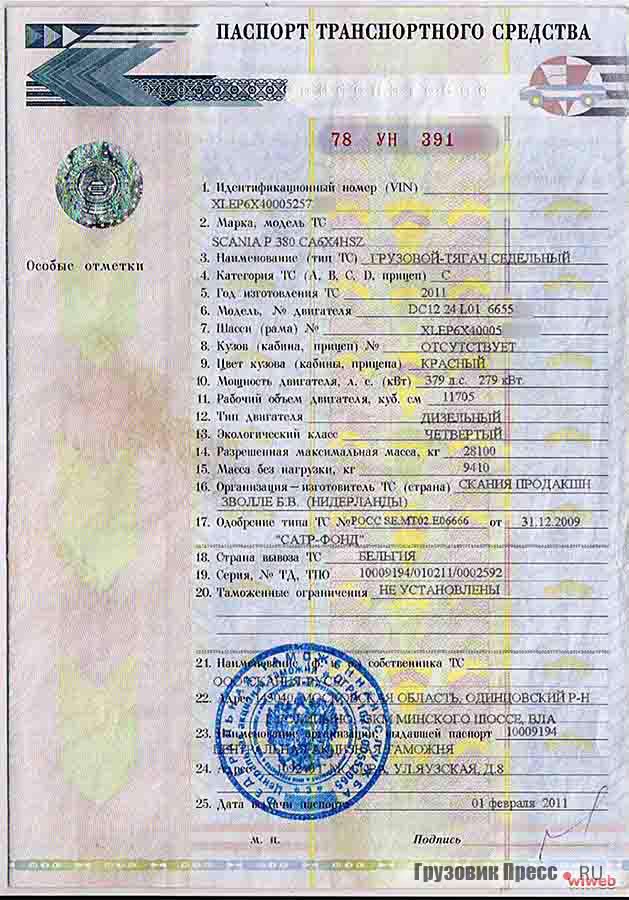 ПАСПОРТ ТРАНСПОРТНОГО СРЕДСТВА
78 УН 391
1. Идентификационный номер (VIN)
XLEP6X40005257
2. Марка, модель ТС
SCANIA P 380 CA6X4HSZ
3. Наименование (тип ТС) ГРУЗОВОЙ-ТЯГАЧ СЕДЕЛЬНЫЙ
Особые отметки
4. Категория ТС (A, B, C, D, прицеп) C
5. Год изготовления ТС 2011
6. Модель, № двигателя DC12 24 L01 6655
7. Шасси (рама) № XLEP6X40005
8. Кузов (кабина, прицеп) № ОТСУТСТВУЕТ
9. Цвет кузова (кабины, прицепа) КРАСНЫЙ
10. Мощность двигателя, л. с. (кВт) 379 л.с. 279 кВт
11. Рабочий объем двигателя, куб. см 11705
12. Тип двигателя ДИЗЕЛЬНЫЙ
13. Экологический класс ЧЕТВЕРТЫЙ
14. Разрешенная максимальная масса, кг 28100
15. Масса без нагрузки, кг 9410
16. Организация—изготовитель ТС (страна) СКАНИЯ ПРОДАКШН
ЗВОЛЛЕ Б.В. (НИДЕРЛАНДЫ)
17. Одобрение типа ТС №РОСС SE.МТ02.Е06666 от 31.12.2009
"САТР-ФОНД"
18. Страна вывоза ТС БЕЛЬГИЯ
19. Серия, № ТД, ТПО 10009194/010211/0002592
20. Таможенные ограничения НЕ УСТАНОВЛЕНЫ
21. Наименование собственника ТС
ООО "СКАНИЯ-РУСЬ"
22. Адрес МОСКОВСКАЯ ОБЛАСТЬ, ОДИНЦОВСКИЙ Р-Н
МИНСКОГО ШОССЕ, ВЛА
23. Наименование организации, выдавшей паспорт 10009194
ЦЕНТРАЛЬНАЯ АКЦИЗНАЯ ТАМОЖНЯ
24. Адрес УЛ.ЯУЗСКАЯ, Д.8
25. Дата выдачи паспорта 01 февраля 2011
М. П. Подпись
Грузовик Пресс .RU
wiweb